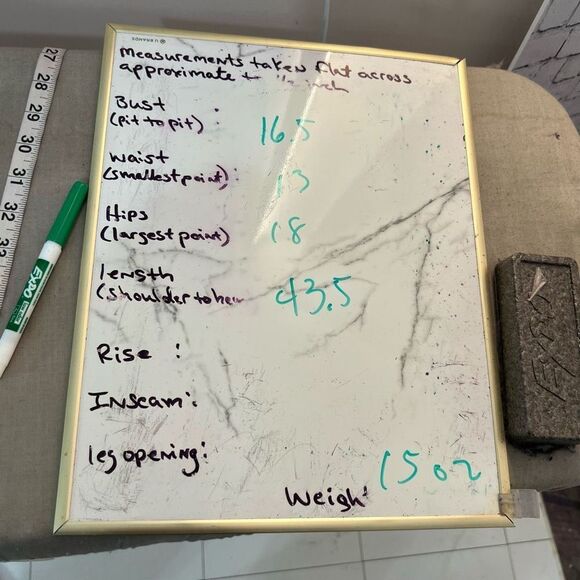 U BRANDS
Measurements taken flat across
approximate + inch
Bust :
(pit to pit) 16.5
waist
(smallest point): 13
Hips
(largest point) 18
length
(shoulder to hem 43.5
Rise :
Inseam:
leg opening:
Weigh: 15 oz
27
28
29
30
31
32
33
EXPO
EXPO